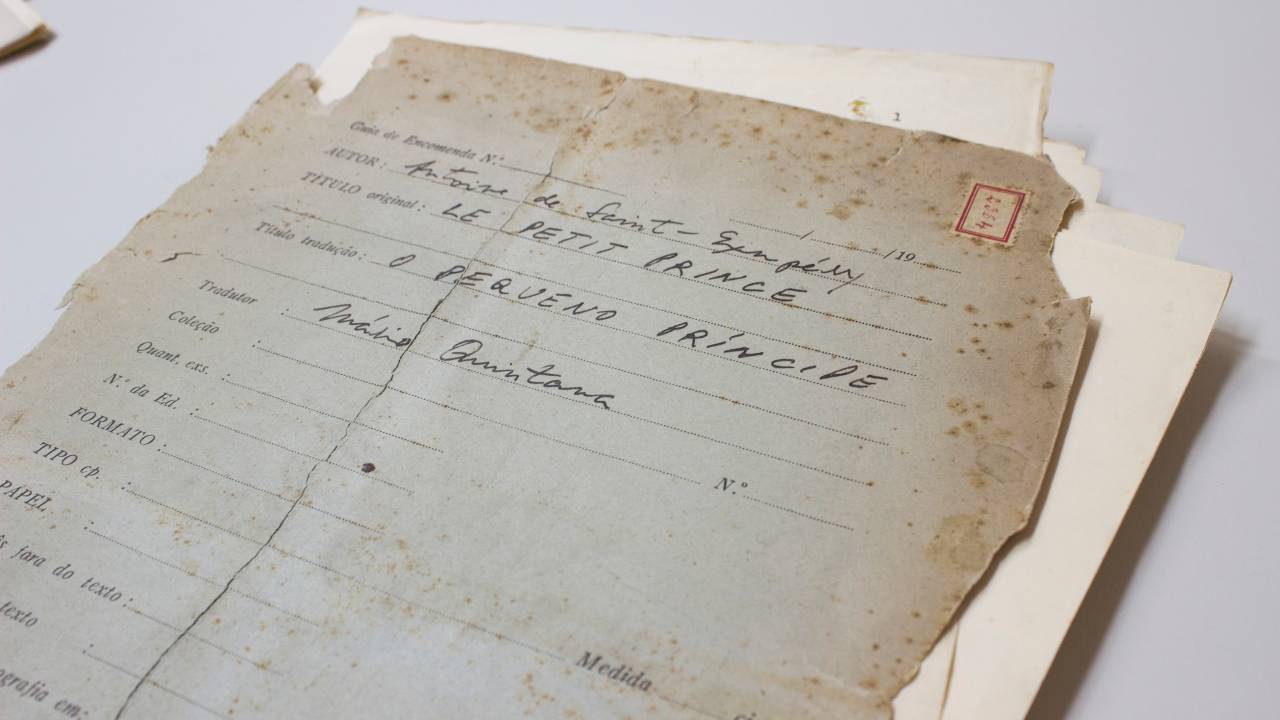 1
Guia de Encomenda N.º
/ /19
4927
AUTOR: Antoine de Saint-Exupéry
TÍTULO original: LE PETIT PRINCE
Título tradução: O PEQUENO PRÍNCIPE
Tradutor : Mário Quintana
Coleção : N.º
Quant. exs. :
N.º da Ed. :
FORMATO :
TIPO cp. : Medida
PAPEL :
fora do texto :
texto :